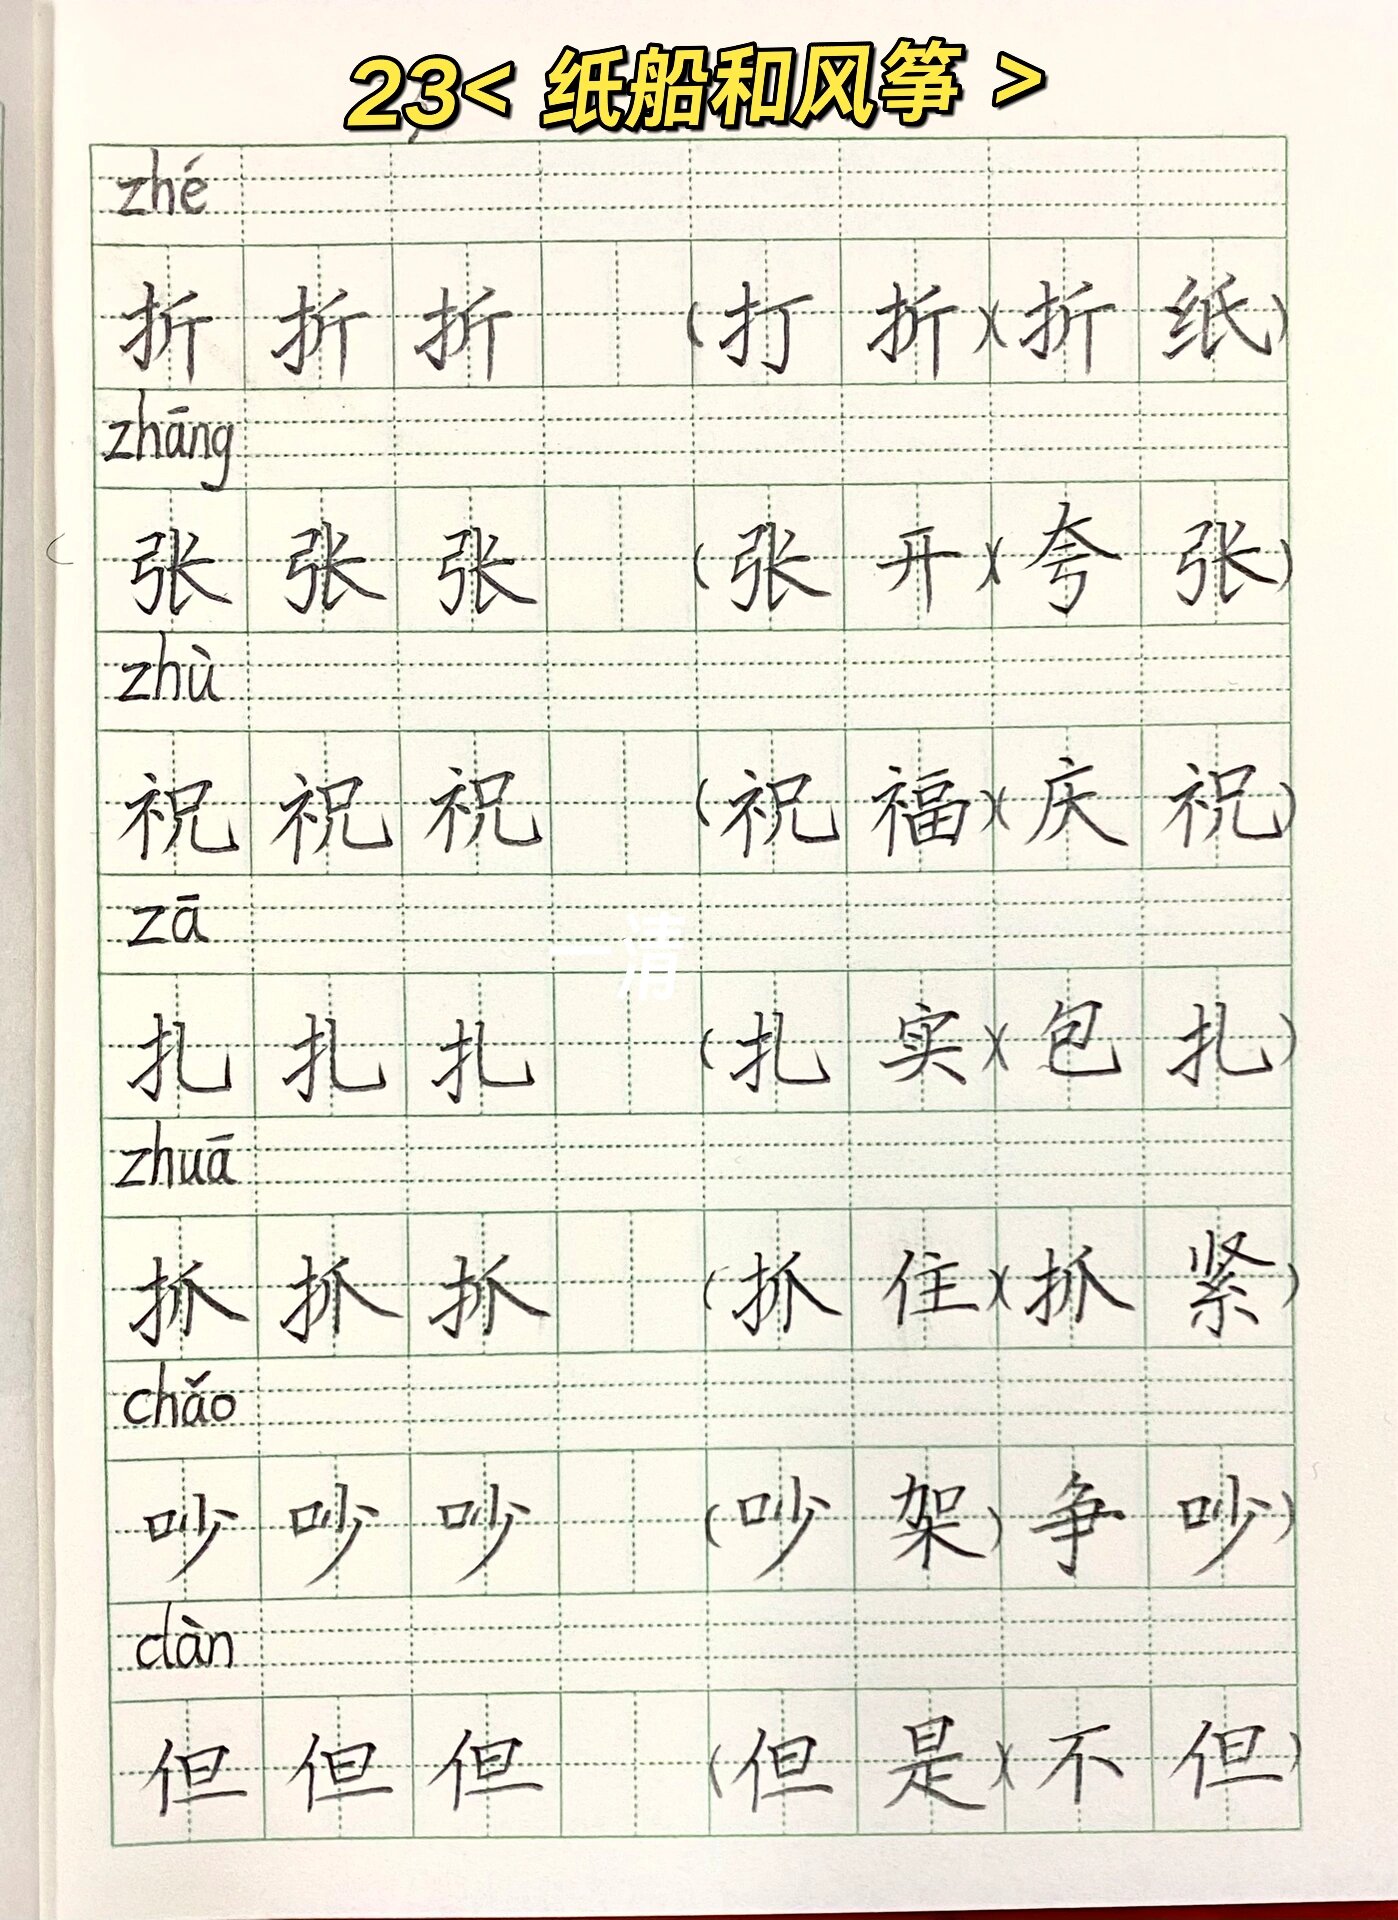 23< 纸船和风筝 >
zhé
折 折 折 (打 折)(折 纸)
zhāng
张 张 张 (张 开)(夸 张)
zhù
祝 祝 祝 (祝 福)(庆 祝)
zā
一清
扎 扎 扎 (扎 实)(包 扎)
zhuā
抓 抓 抓 (抓 住)(抓 紧)
chǎo
吵 吵 吵 (吵 架) 争 吵)
dàn
但 但 但 (但 是)(不 但)